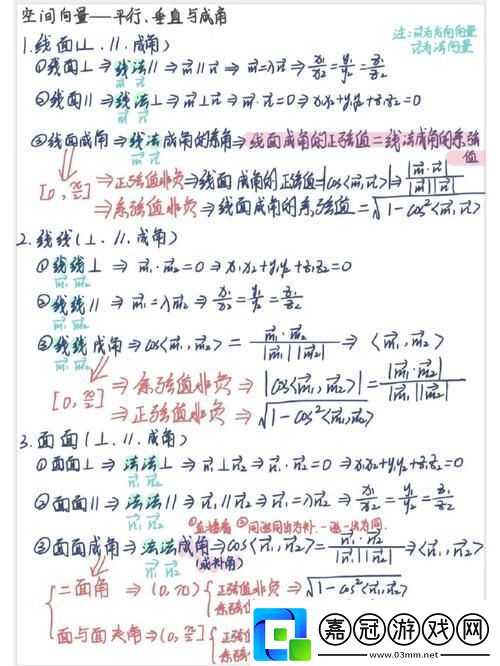 空间向量——平行、垂直与成角
注: m⃗为方向向量
n⃗为法向量
1.线面(⊥、∥、成角)
①线面⊥⇒线法∥⇒m⃗∥n⃗⇒m⃗=λn⃗⇒x₁/x₂=y₁/y₂=z₁/z₂
m⃗ n⃗
②线面∥⇒线法⊥⇒m⃗⊥n⃗⇒m⃗·n⃗=0⇒x₁x₂+y₁y₂+z₁z₂=0
m⃗ n⃗
③线面成角⇒线法成角的余角⇒线面成角的正弦值=线法成角的余弦值
m⃗ n⃗
[0,π/2]⇒正弦值非负⇒线面成角的正弦值=|cos<m⃗,n⃗>|⇒|m⃗·n⃗|/|m⃗||n⃗|
⇒余弦值非负⇒线面成角的余弦值=√1-cos²<m⃗,n⃗>
2.线线(⊥、∥、成角)
①线线⊥⇒m⃗₁·m⃗₂=0⇒x₁x₂+y₁y₂+z₁z₂=0
m⃗₁ m⃗₂
②线线∥⇒m⃗₁=λm⃗₂⇒x₁/x₂=y₁/y₂=z₁/z₂
m⃗₁ m⃗₂
③线线成角⇒cos<m⃗₁,m⃗₂>=m⃗₁·m⃗₂/|m⃗₁||m⃗₂|⇒<m⃗₁,m⃗₂>
m⃗₁ m⃗₂
[0,π/2]⇒余弦值非负⇒|cos<m⃗₁,m⃗₂>|=|m⃗₁·m⃗₂|/|m⃗₁||m⃗₂|
⇒正弦值非负⇒√1-cos²<m⃗₁,m⃗₂>
3.面面(⊥、∥、成角)
①面面⊥⇒法法⊥⇒n⃗₁⊥n⃗₂⇒n⃗₁·n⃗₂=0⇒x₁x₂+y₁y₂+z₁z₂=0
n⃗₁ n⃗₂
②面面∥⇒法法∥⇒n⃗₁∥n⃗₂⇒n⃗₁=λn⃗₂⇒x₁/x₂=y₁/y₂=z₁/z₂
n⃗₁ n⃗₂
①直接看 ②同进同出为补.一进一出为同.
③面面成角⇒法法成角⇒cos<n⃗₁,n⃗₂>=n⃗₁·n⃗₂/|n⃗₁||n⃗₂|⇒<n⃗₁,n⃗₂>
n⃗₁ n⃗₂ (或补角)
二面角⇒(0,π){正弦值非负⇒√1-cos²<n⃗₁,n⃗₂>
余弦值
面与面夹角⇒(0,π/2]{正弦值
余弦
嘉冠游戏网
www.03mm.net